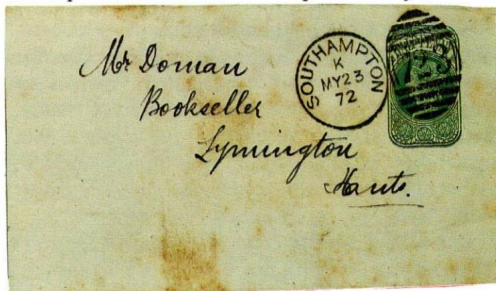 Mr Doman
Bookseller
Lymington
Hants.
SOUTHAMPTON
K
MY 23
72